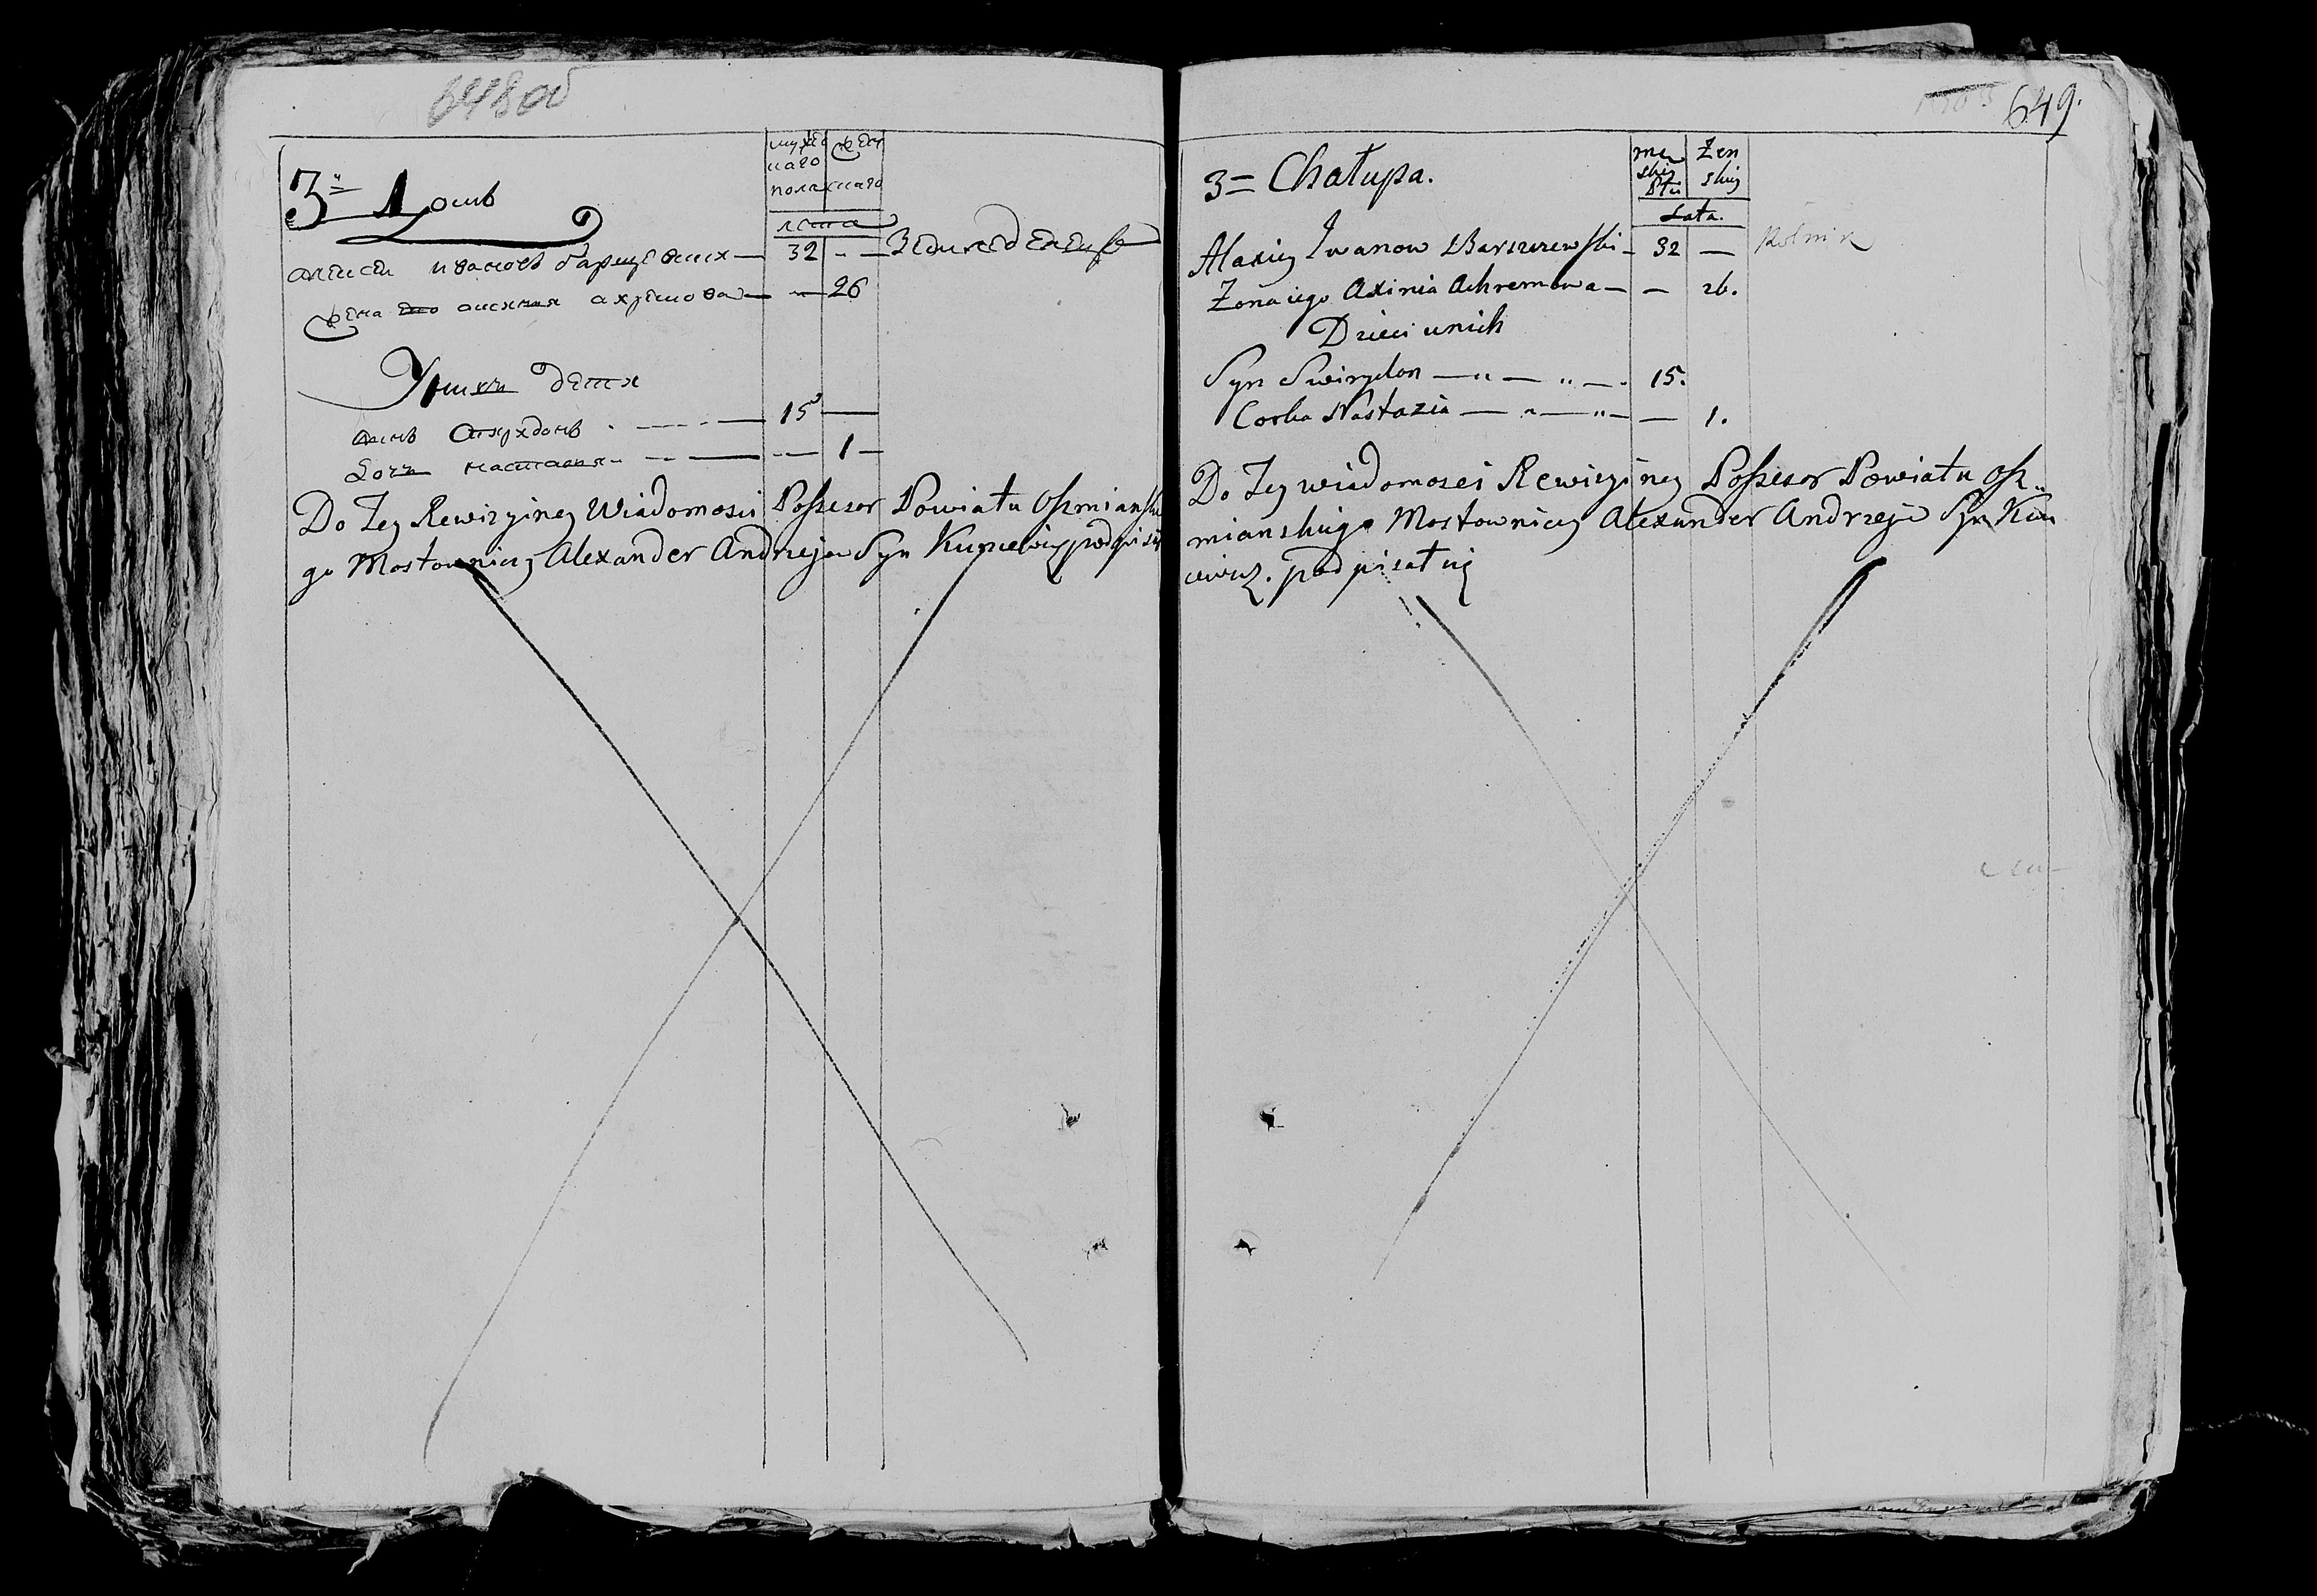 648 об
3й Домъ
мужеска го пола
женскаго
лета
Алексей Ивановъ Баршевскихъ — 32 - —
Жена его Аксиния Ахремова — — 26
У них дети
Сынъ Свиридонъ . — 15 —
Дочь Настазия — — 1 —
Do Tey Rewizyiney Wiadomosci Possesor Powiatu Oszmianskie
go Mostowniczy Alexander Andrzeja Syn Kuncewicz podpisał się
649.
3= Chałupa.
męskiey Płci
Żenskiey
Lata.
Alaxiey Iwanow Barszczewski — 32 — Rolnik
Żona iego Axinia Achremowa — — 26.
Dzieci u nich
Syn Swirydon — „ — „ — . 15.
Corka Nastazia — „ — „ — — 1.
Do Tey wiadomosci Rewizyiney Possesor Powiatu Osz„
mianskiego Mostowniczy Alexander Andrzeja Syn Kun
cewicz. podpisał się